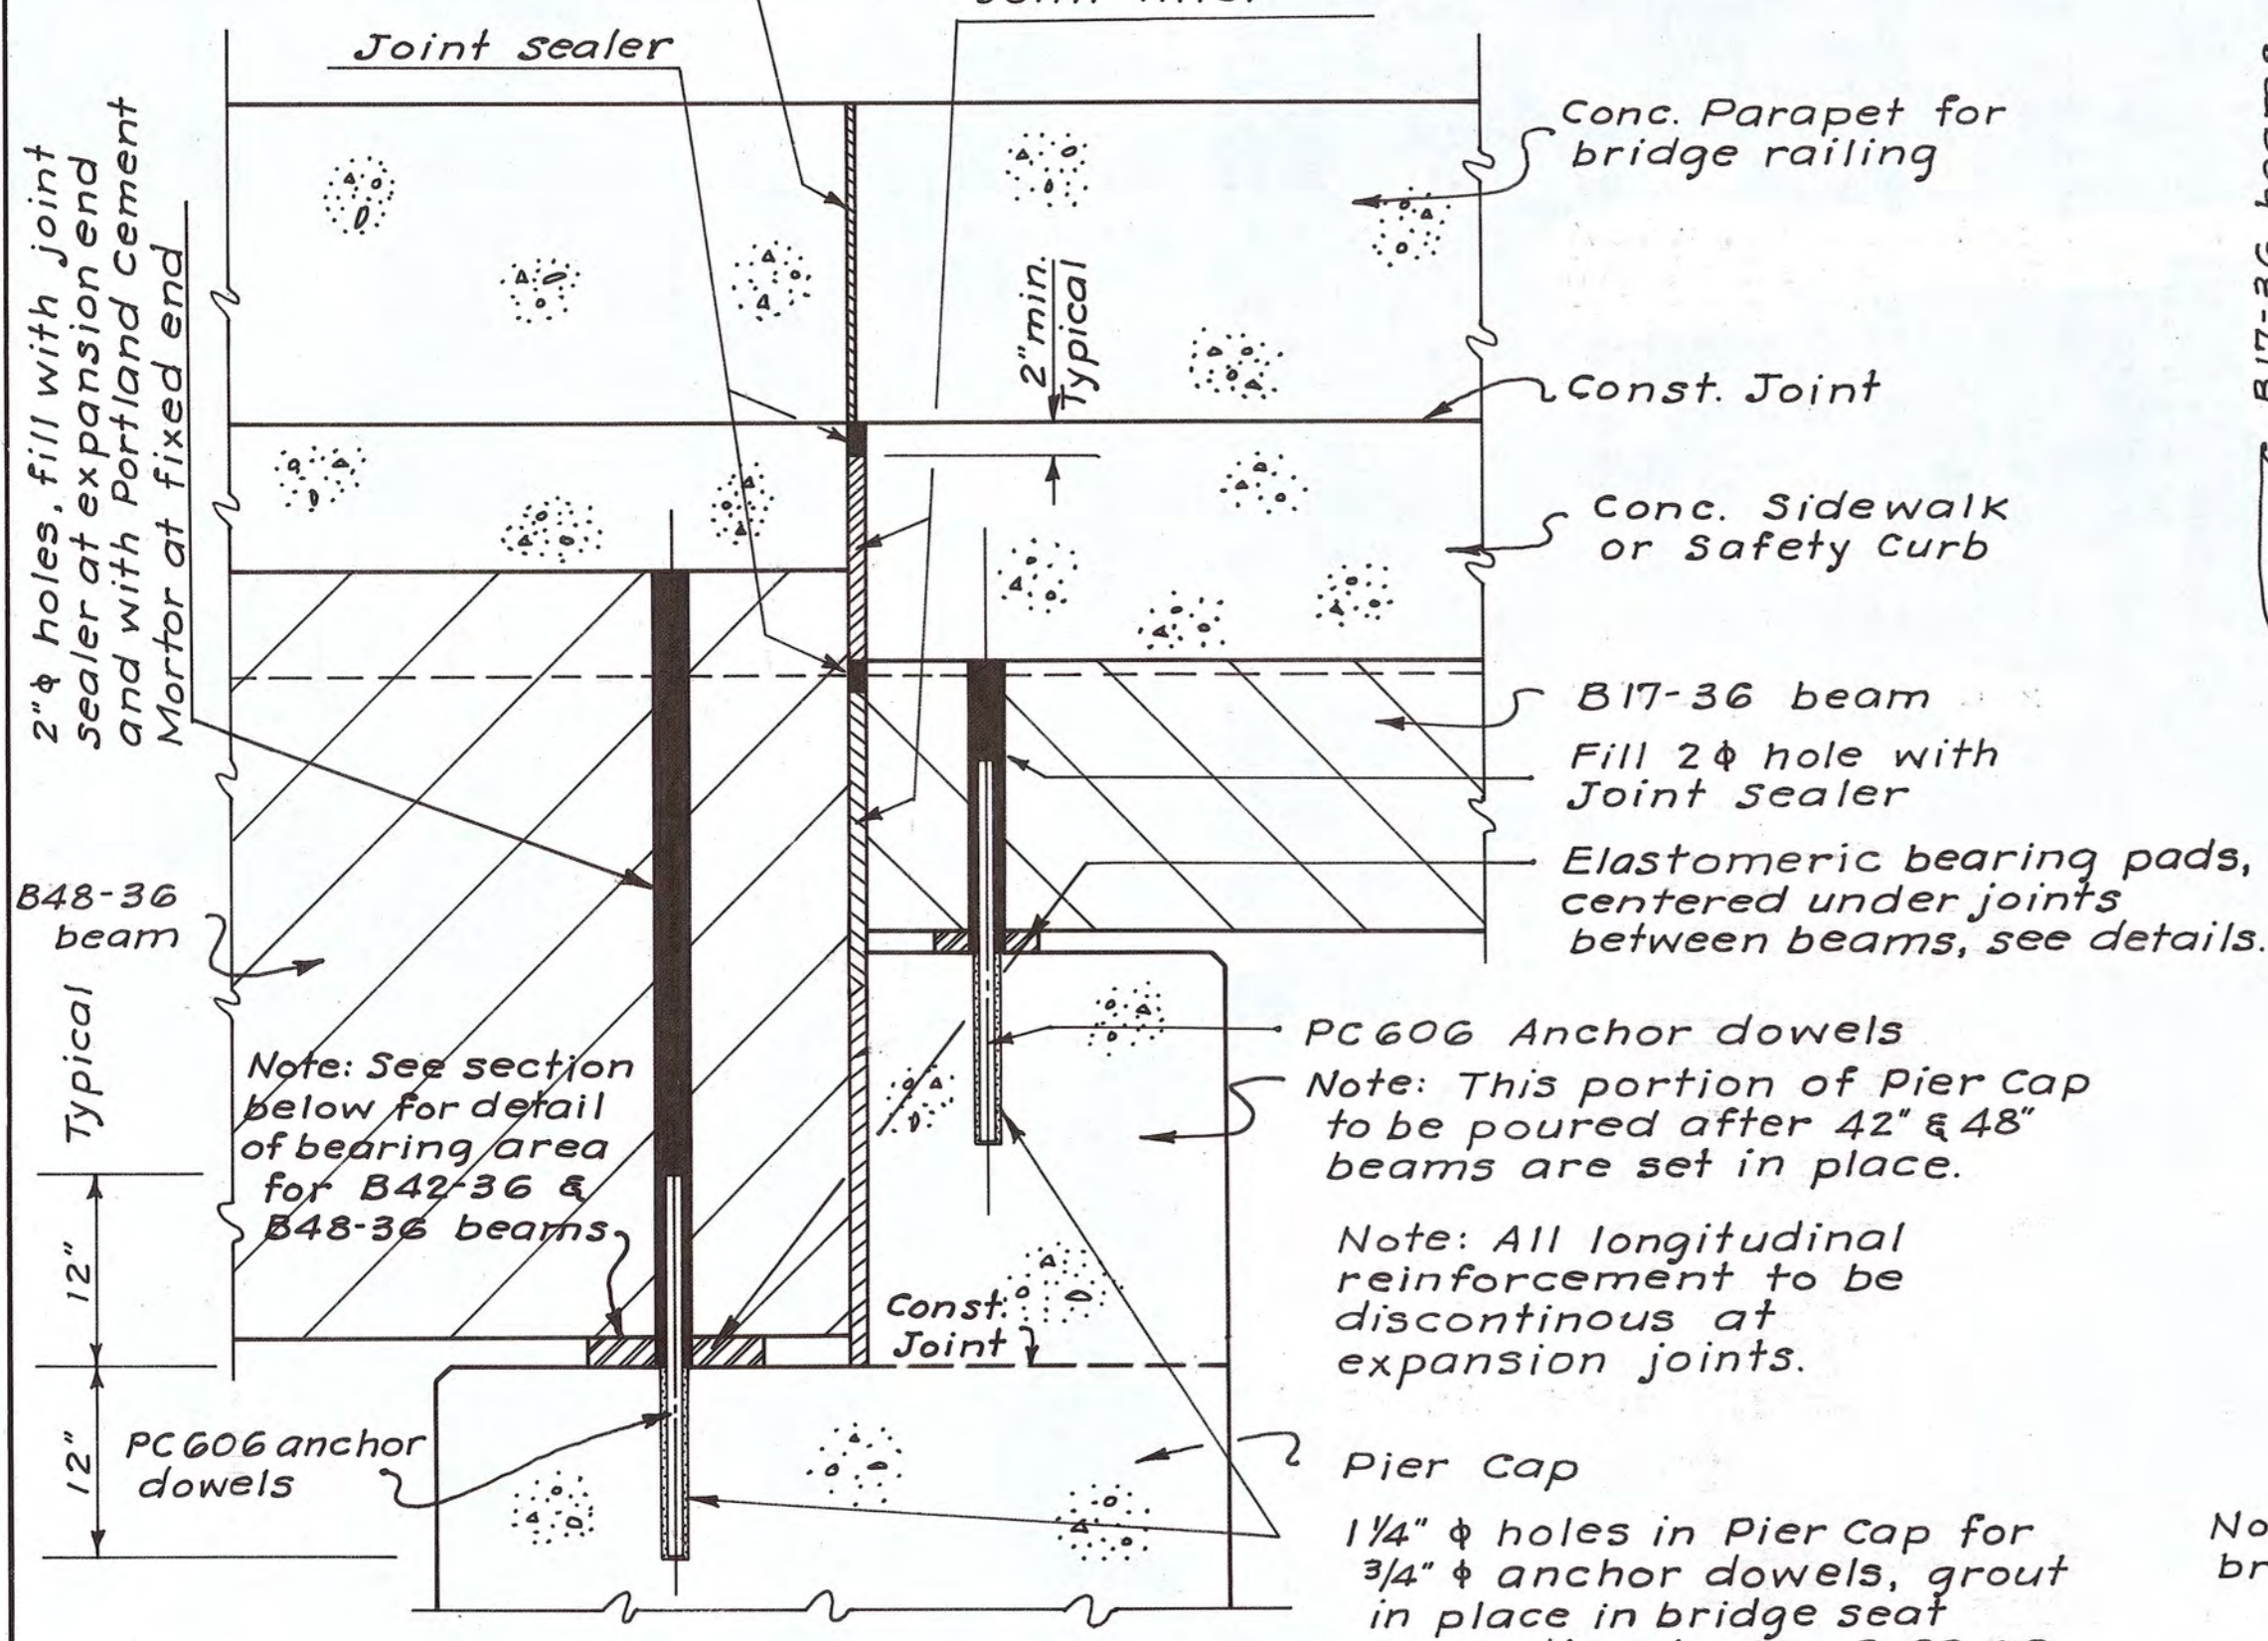 Joint sealer
2"ϕ holes, fill with joint
sealer at expansion end
and with Portland cement
Mortor at fixed end
2" min.
Typical
Conc. Parapet for
bridge railing
Const. Joint
Conc. Sidewalk
or Safety Curb
B17-36 beam
Fill 2 ϕ hole with
Joint sealer
Elastomeric bearing pads,
centered under joints
between beams, see details.
B48-36
beam
Typical
12"
12"
Note: See section
below for detail
of bearing area
for B42-36 &
B48-36 beams.
PC606 anchor
dowels
Const.
Joint
PC606 Anchor dowels
Note: This portion of Pier Cap
to be poured after 42" & 48"
beams are set in place.
Note: All longitudinal
reinforcement to be
discontinous at
expansion joints.
Pier Cap
1¼" ϕ holes in Pier Cap for
¾" ϕ anchor dowels, grout
in place in bridge seat
B17-36
No
br